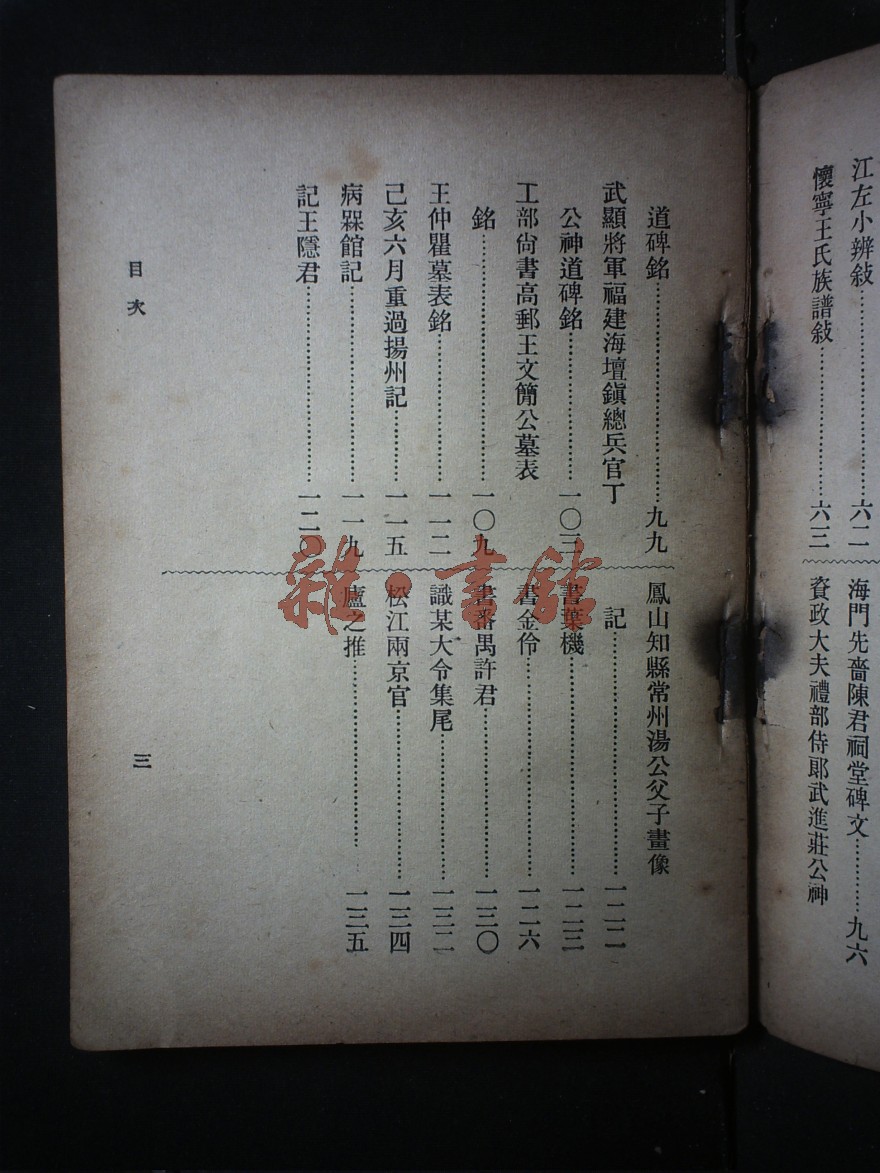 江左小辨敍……六二
懷寧王氏族譜敍……六三
海門先嗇陳君祠堂碑文……九六
資政大夫禮部侍郞武進莊公神
道碑銘……九九
武顯將軍福建海壇鎭總兵官丁
公神道碑銘……一〇三
工部尙書高郵王文簡公墓表
銘……一〇九
王仲瞿墓表銘……一一二
己亥六月重過揚州記……一一五
病槑館記……一一九
記王隱君……一二〇
鳳山知縣常州湯公父子畫像
記……一二二
書葉機……一二三
書金伶……一二六
書番禺許君……一三〇
識某大令集尾……一三二
松江兩京官……一三四
廬之推……一三五
目次
三
雜·書館